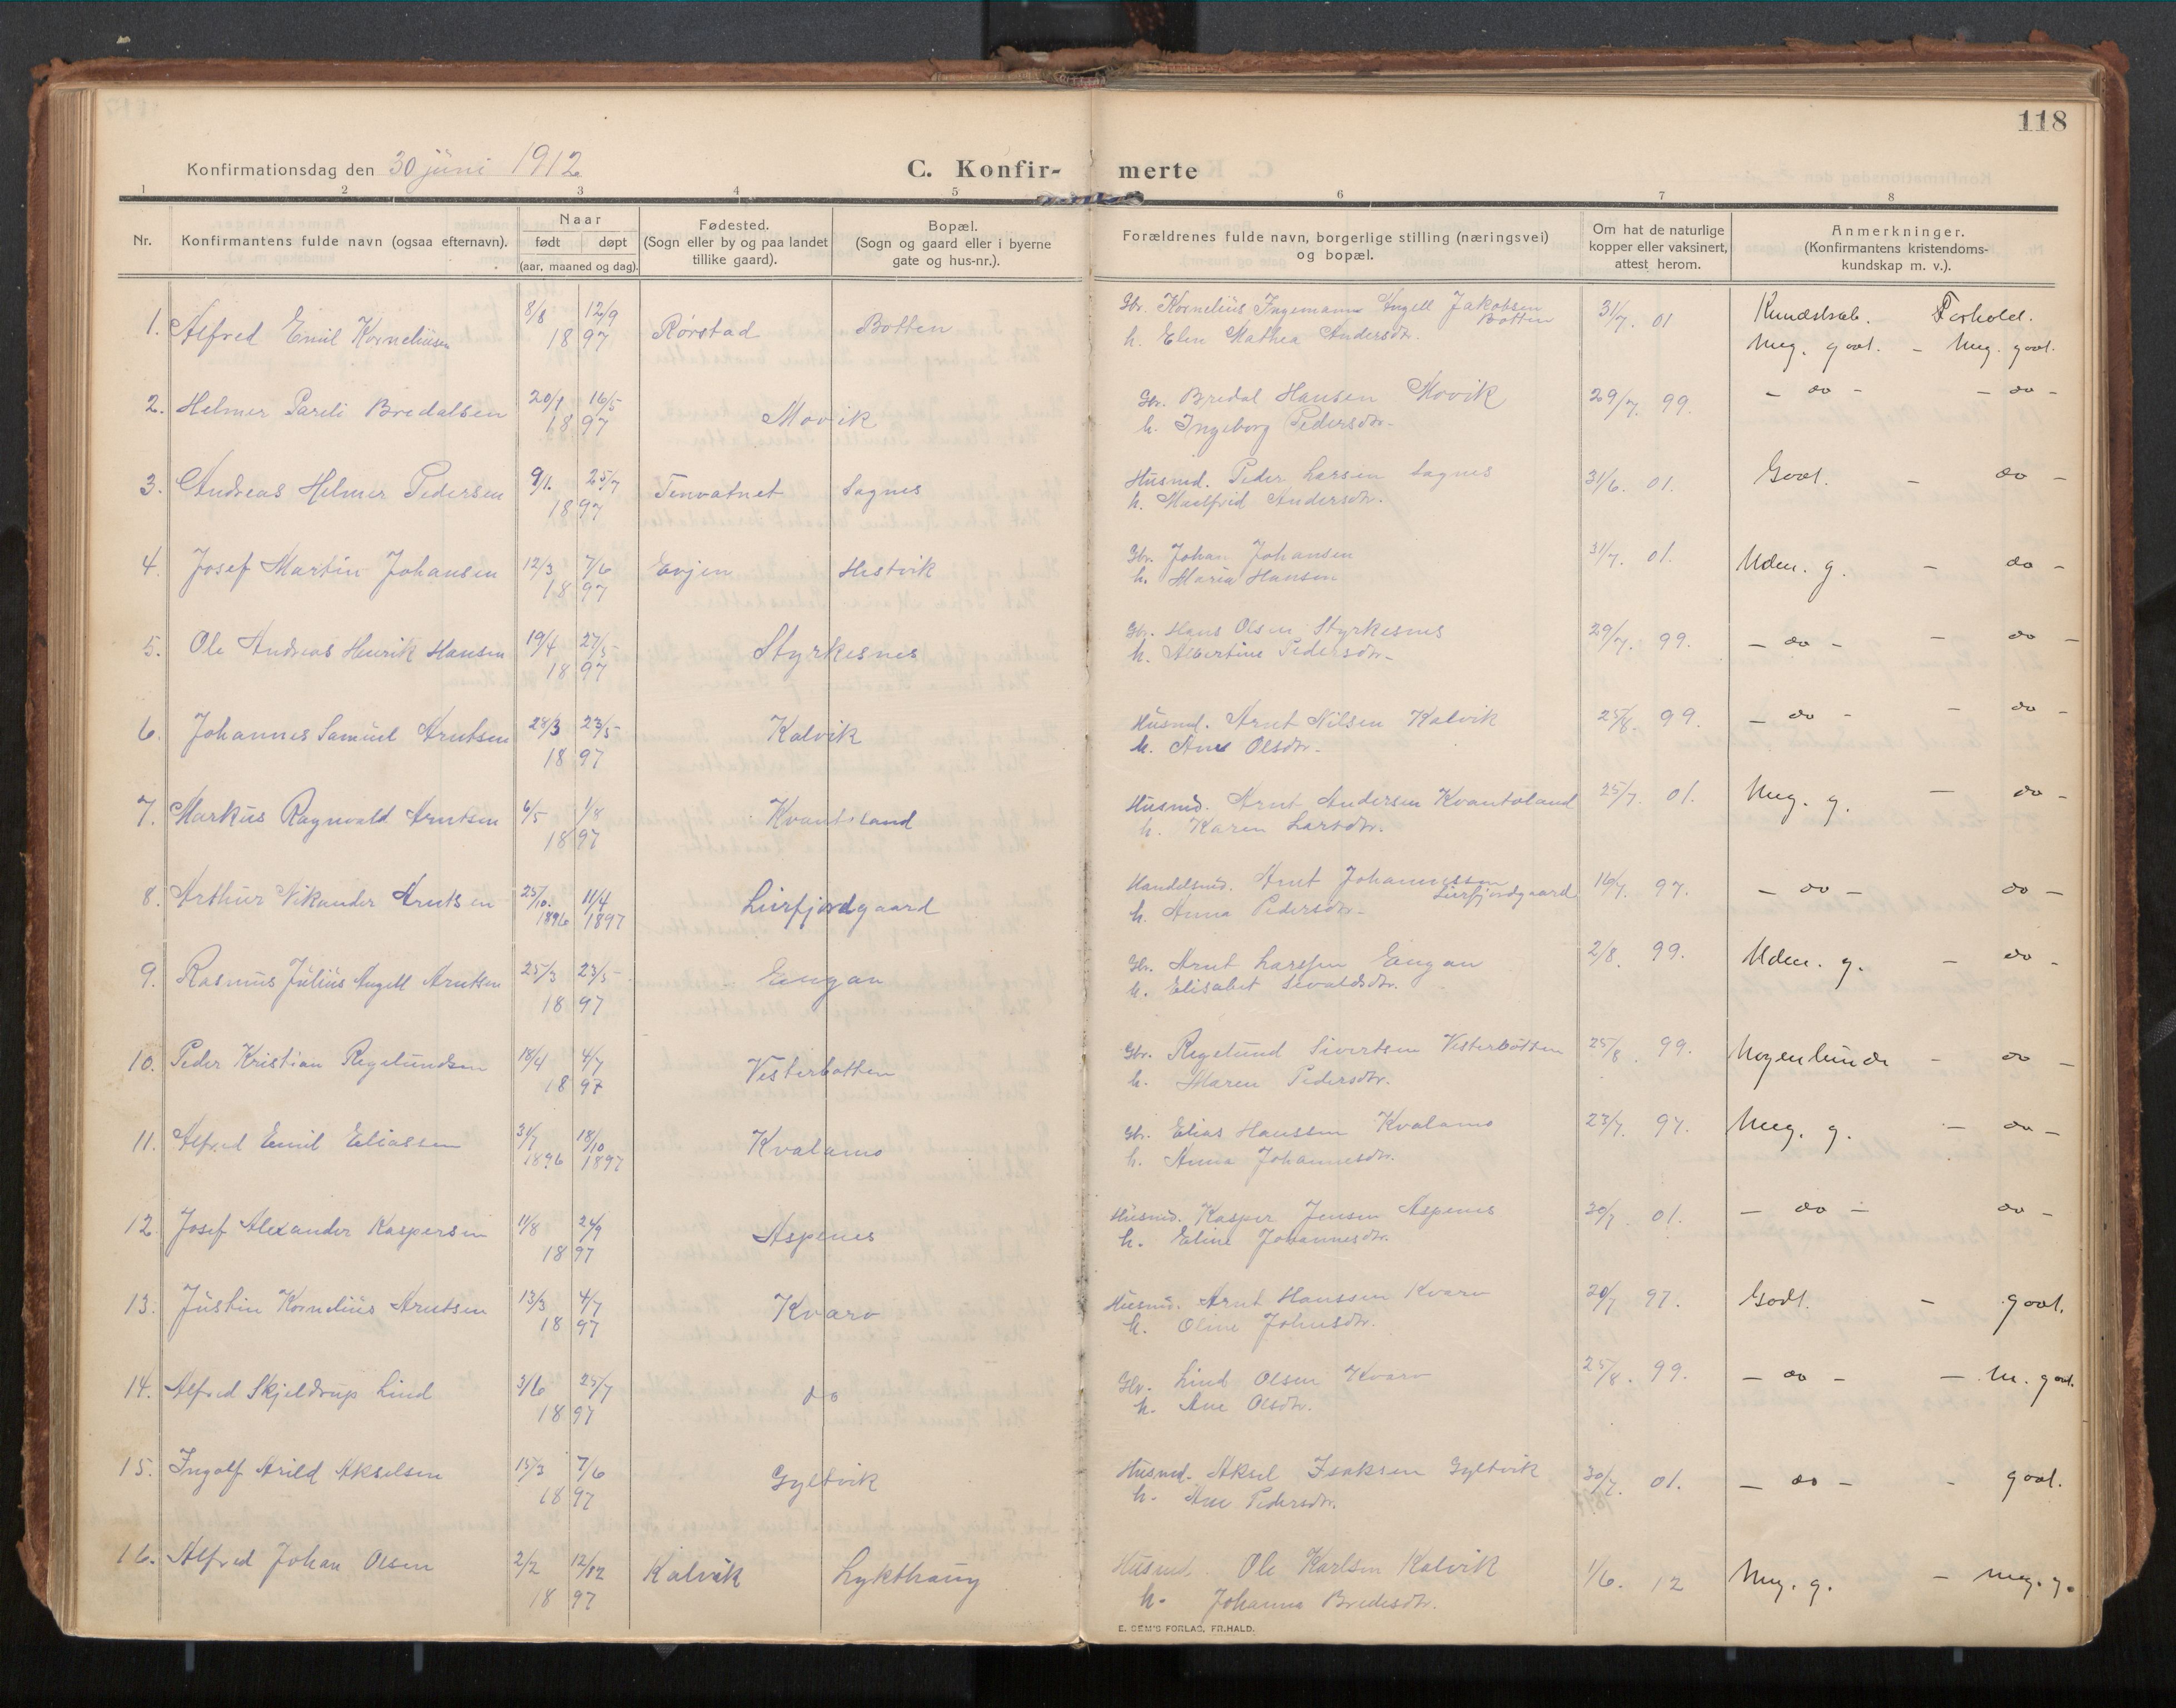 118
Konfirmationsdag den 30 juni 1912
C. Konfir- merte
1 2 3 4 5 6 7 8
Nr. Konfirmantens fulde navn (ogsaa efternavn). Naar født døpt (aar, maaned og dag). Fødested. (Sogn eller by og paa landet tillike gaard). Bopæl. (Sogn og gaard eller i byerne gate og hus-nr.). Forældrenes fulde navn, borgerlige stilling (næringsvei) og bopæl. Om hat de naturlige kopper eller vaksinert, attest herom. Anmerkninger. (Konfirmantens kristendoms- kundskap m. v.).
Kundskab. Forhold.
1. Alfred Emil Korneliusen 8/8 12/9 1897 Rørstad Botten Gbr. Kornelius Ingemann Angell Jakobsen Botten 31/7. 01 Meg. godt. – Meg. godt.
h. Elen Mathea Andersdtr.
2. Helmer Pareli Bredalsen 20/1 16/5 1897 Movik Gbr. Bredal Hansen Movik 29/7. 99. – do – – do –
h. Ingeborg Pedersdtr.
3. Andreas Helmer Pedersen 9/1. 25/7 1897 Tenvatnet Sagnes Husmd. Peder Larsen Sagnes 31/6. 01. Godt. – do –
h. Maalfrid Andersdtr.
4. Josef Martin Johansen 12/3 7/6 1897 Evjen Hestvik Gbr. Johan Johansen 31/7. 01. Uden. g. – do –
h. Maria Hansen
5. Ole Andreas Henrik Hansen 19/4 27/5 1897 Styrkesnes Gbr. Hans Olsen Styrkesnes 29/7. 99. – do – – do –
h. Albertine Pedersdtr.
6. Johannes Samuel Arntsen 28/3 23/5 1897 Kalvik Husmd. Arnt Nilsen Kalvik 25/8. 99. – do – – do –
h. Ane Olsdtr.
7. Markus Ragnvald Arntsen 6/5 1/8 1897 Kvantoland Husmd. Arnt Andersen Kvantoland 25/7. 01. Meg. g. – do –
h. Karen Larsdtr.
8. Arthur Nikander Arntsen 25/10. 1896 11/4 1897 Leirfjordgaard Handelsmd. Arnt Johannessen Leirfjordgaard 16/7. 97. – do – do –
h. Anna Pedersdtr.
9. Rasmus Julius Angell Arntsen 25/3 23/5 1897 Engan Gbr. Arnt Larssen Engan 2/8. 99. Uden. g. – do –
h. Elisabet Sivaldsdtr.
10. Peder Kristian Regelundsen 18/4 4/7 1897 Vesterbotten Gbr. Regelund Sivertsen Vesterbotten 25/8. 99. Nogenlunde – do –
h. Maren Pedersdtr.
11. Alfred Emil Eliassen 31/7 1896 18/10 1897 Kvalamo Gbr. Elias Hanssen Kvalamo 23/7. 97. Meg. g. – do –
h. Anna Johannesdtr.
12. Josef Alexander Kaspersen 11/8 24/9 1897 Aspenes Husmd. Kasper Jensen Aspenes 30/7. 01. – do – do –
h. Eline Johannesdtr.
13. Justin Kornelius Arntsen 13/3 4/7 1897 Kvarv Husmd. Arnt Hanssen Kvarv 20/7 97. Godt. – godt.
h. Oline Johnsdtr.
14. Alfred Skjeldrup Lind 3/6 25/7 1897 do Gbr. Lind Olsen Kvarv 25/8. 99. – do – – M. godt.
h. Ane Olsdtr.
15. Ingolf Arild Akselsen 15/3 7/6 1897 Gyltvik Husmd. Aksel Isaksen Gyltvik 30/7. 01. – do – – godt.
h. Ane Pedersdtr.
16. Alfred Johan Olsen 2/2 12/12 1897 Kalvik Lykthaug Husmd. Ole Karlsen Kalvik 1/6. 12 Meg. g. – meg. g.
h. Johanna Bredesdtr.
E. SEM'S FORLAG, FR.HALD.